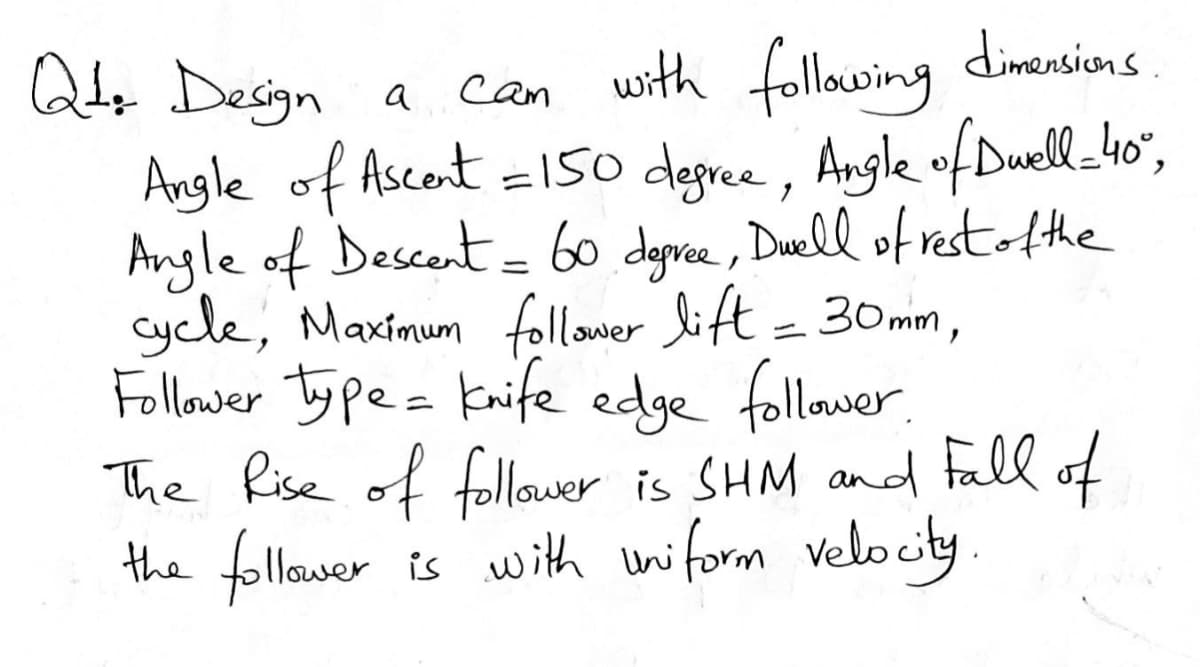 Q1: Design a cam with following dimensions.
Angle of Ascent = 150 degree, Angle of Dwell = 40°,
Angle of Descent = 60 degree, Dwell of rest of the
cycle, Maximum follower lift = 30mm,
Follower type = knife edge follower.
The Rise of follower is SHM and Fall of
the follower is with uniform velocity.